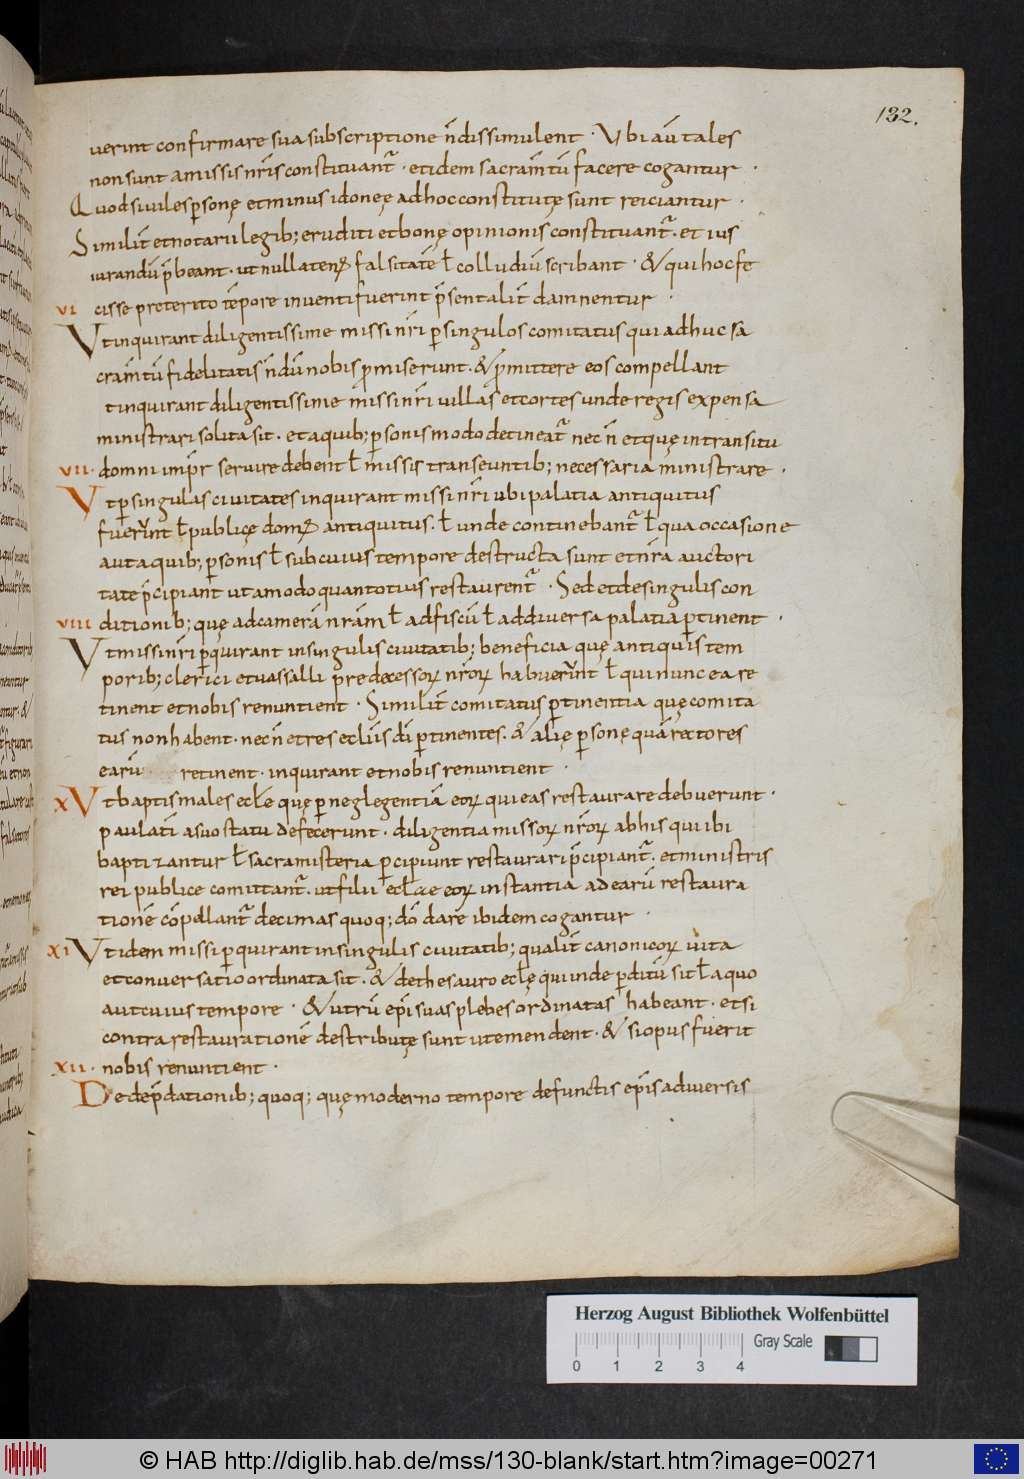 132.
uerint confirmare sua subscriptione n̄ dissimulent · Vbi aū tales
non sunt a missis nr̄is constituant᷑ · et idem sacram̄tū facere cogantur ·
Quod si uiles ꝑsonę et minus idoneę ad hoc constitutę sunt reiciantur ·
Similit̄ et notarii legib; eruditi et bonę opinionis constituant᷑ · et ius
iurandū p̄beant · ut nullaten᷒ falsitatē ł colludiū scribant · & qui hoc fe
VI cisse preterito tēpore inuenti fuerint p̄sentalit̄ damnentur ·
Vt inquirant diligentissime missi nr̄i ꝑ singulos comitatus qui adhuc sa
cram̄tū fidelitatis n̄dū nobis ꝓmiserunt · & ꝓmittere eos compellant
t inquirant diligentissime missi nr̄i uillas et cortes unde regis expensa
ministrari solita sit · et a quib; ꝑsonis modo detineat᷑ nec n̄ et quę in transitu
VII · domni impr̄ seruire debent ł missis transeuntib; necessaria ministrare ·
Vt ꝑ singulas ciuitates inquirant missi nr̄i ubi palatia antiquitus
fuerunt ł publicę dom᷒ antiquitus · ł unde continebant᷑ ł qua occasione
aut a quib; ꝑsonis ł sub cuius tempore destructa sunt et nr̄a auctori
tate p̄cipiant ut amodo quantotius restaurent᷑ · Sed et de singulis con
VIII ditionib; quę ad camerā nr̄am ł ad fiscū ł ad diuersa palatia ꝑtinent ·
Vt missi nr̄i ꝑquirant in singulis ciuitatib; beneficia quę antiquis tem
porib; clerici et uassalli predecessoꝝ nr̄oꝝ habuerunt ł qui nunc ea re
tinent et nobis renuntient · Similit̄ comitatus ꝑtinentia quę comita
tus non habent · nec n̄ et res ecl̄iis dī ꝑtinentes · & alię ꝑsonę quā rectores
earū retinent · inquirant et nobis renuntient ·
X Vt baptismales eccłe quę ꝑ neglegentiā eoꝝ qui eas restaurare debuerunt ·
paulatī a suo statu defecerunt · diligentia missoꝝ nr̄oꝝ ab his qui ibi
baptizantur ł sacra misteria ꝑcipiunt restaurari p̄cipiant᷑ · et ministris
rei publice comittant᷑ · ut filii eccłae eoꝝ instantia ad earū restaura
tionē cōpellant᷑ decimas quoq; dō dare ibidem cogantur ·
XI Vt idem missi ꝑquirant in singulis ciuitatib; qualit̄ canonicoꝝ uita
et conuersatio ordinata sit · & de thesauro eccłę qui inde ꝑditū sit ł a quo
aut cuius tempore · & utrū ep̄i suas plebes ordinatas habeant · et si
contra restaurationē destributę sunt ut emendent · & si opus fuerit
XII · nobis renuntient ·
De dep̄dationib; quoq; quę moderno tempore defunctis ep̄is a diuersis
Herzog August Bibliothek Wolfenbüttel
0 1 2 3 4 Gray Scale
© HAB http://diglib.hab.de/mss/130-blank/start.htm?image=00271